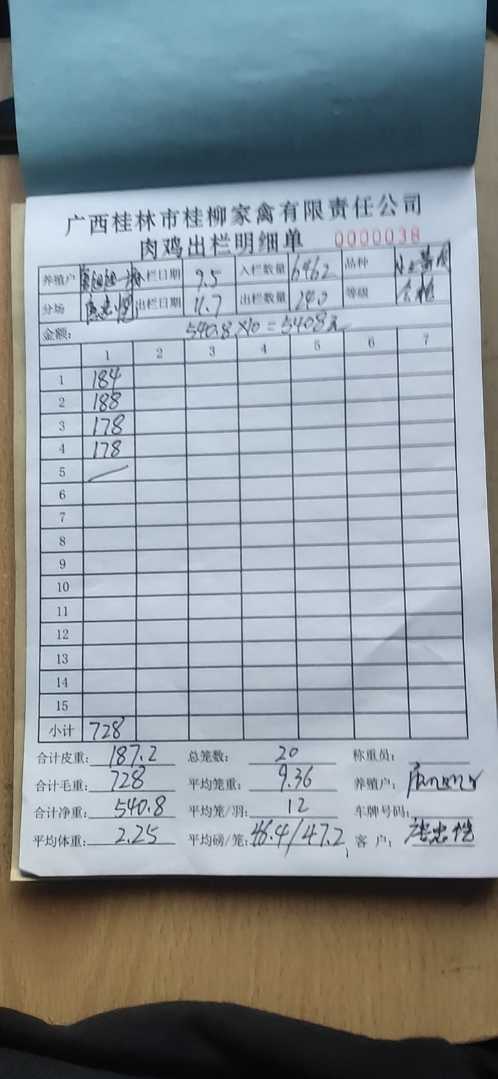 广西桂林市桂柳家禽有限责任公司
肉鸡出栏明细单 0000038
养殖户 入栏日期 9.5 入栏数量 6462 品种
分场 出栏日期 11.7 出栏数量 240 等级 合格
金额: 540.8×10=5408元
1 2 3 4 5 6 7
1 184
2 188
3 178
4 178
5
6
7
8
9
10
11
12
13
14
15
小计 728
合计皮重: 187.2 总笼数: 20 称重员:
合计毛重: 728 平均笼重: 9.36 养殖户:
合计净重: 540.8 平均笼/羽: 12 车牌号码:
平均体重: 2.25 平均磅/笼: 46.4/47.2 客户: